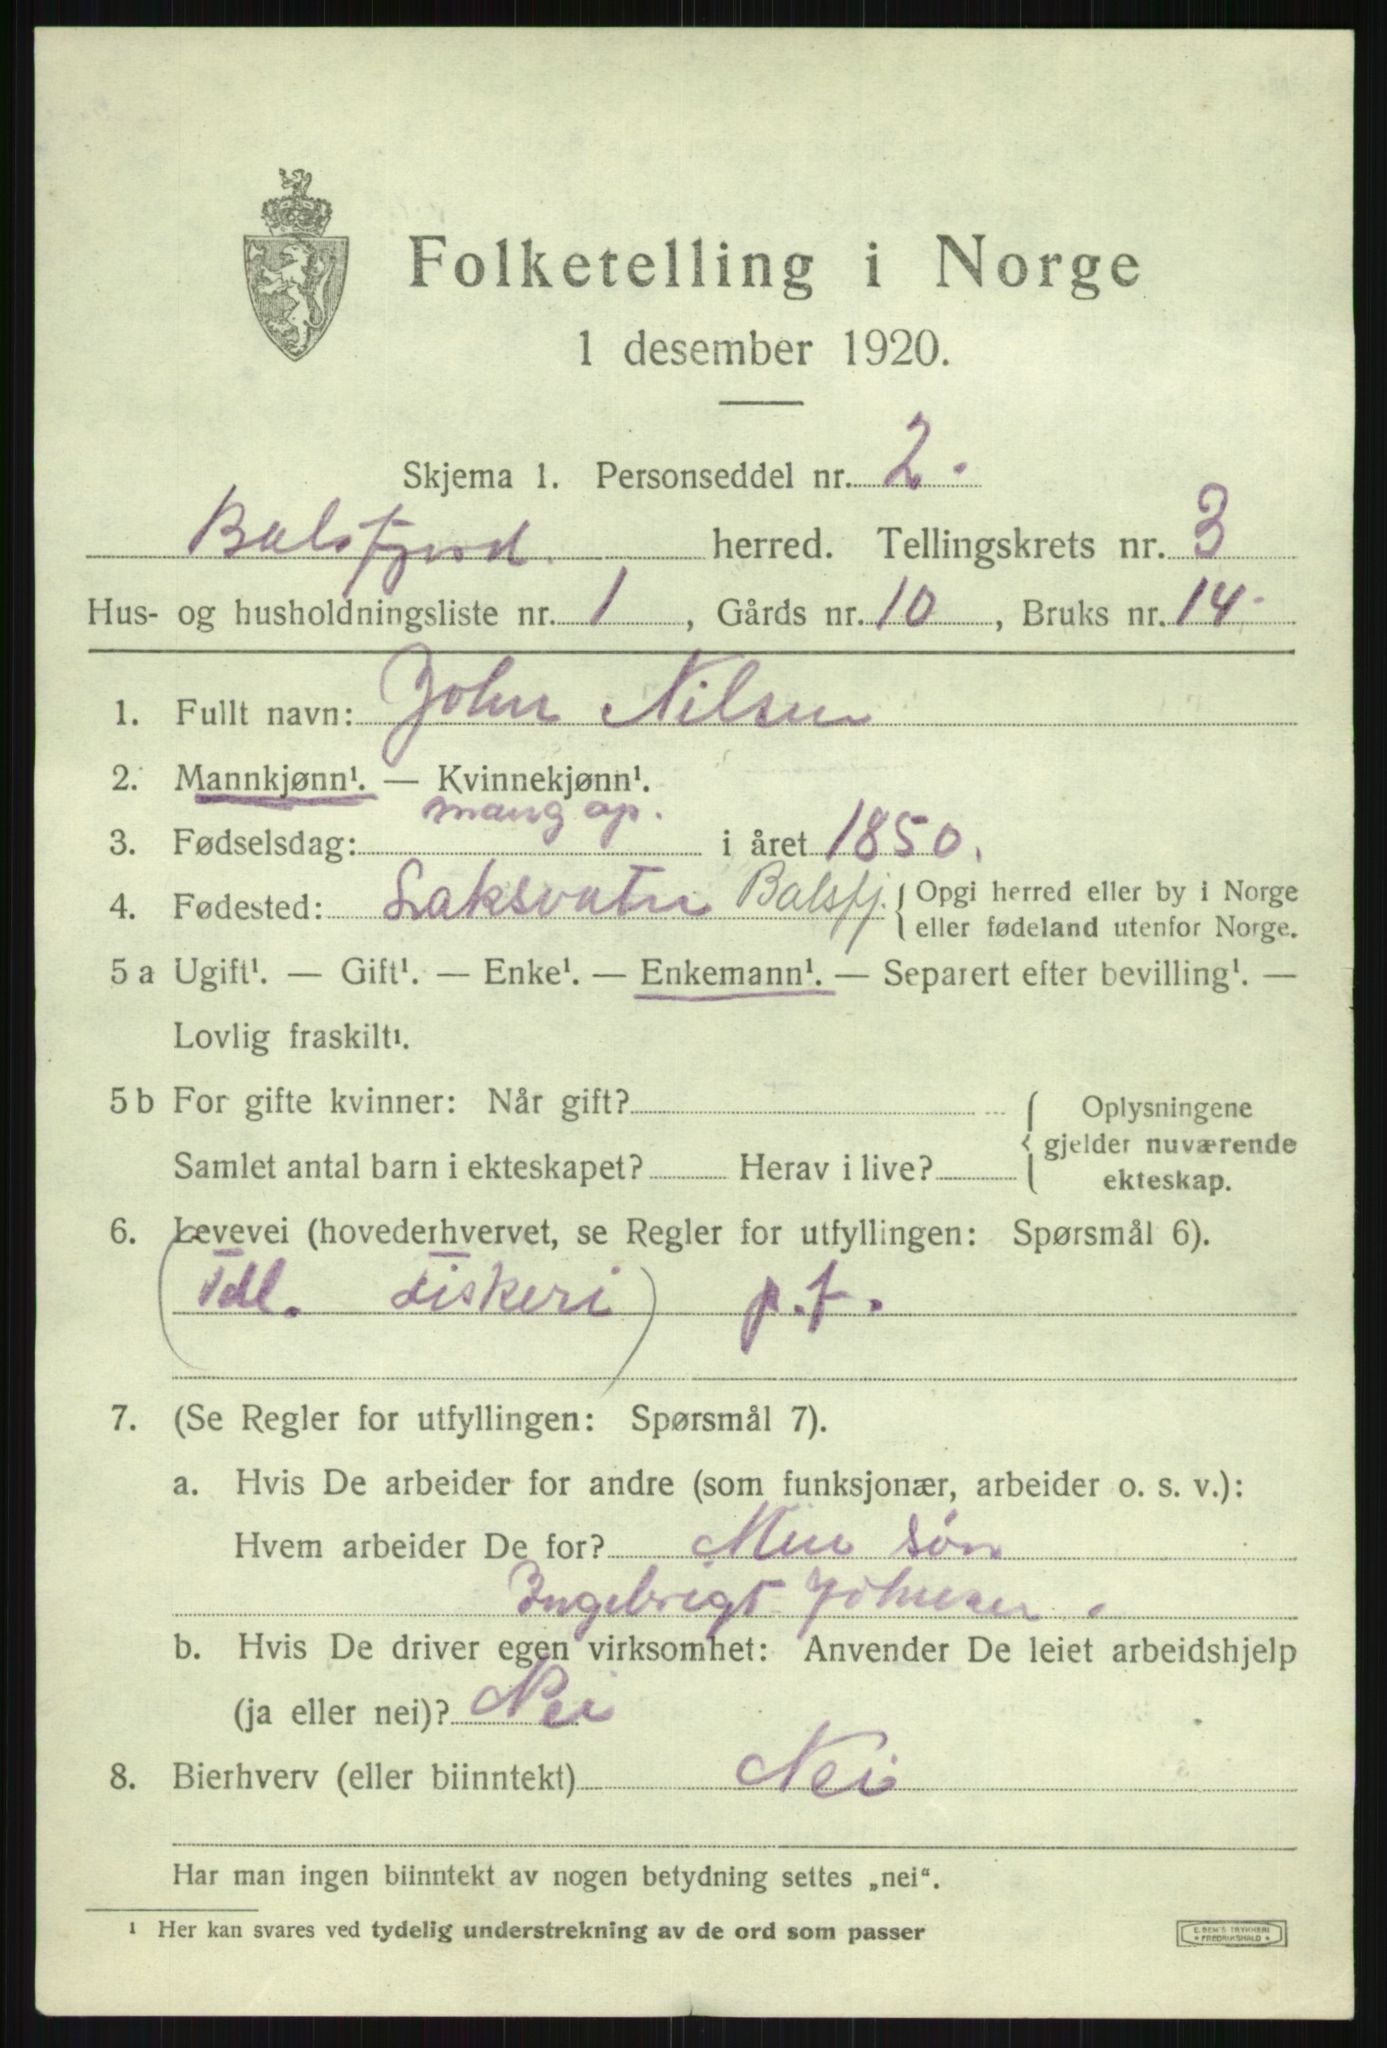 Folketelling i Norge
1 desember 1920.
Skjema 1. Personseddel nr. 2.
Balsfjord herred. Tellingskrets nr. 3
Hus- og husholdningsliste nr. 1, Gårds nr. 10, Bruks nr. 14
1. Fullt navn: John Nilsen
2. Mannkjønn¹. — Kvinnekjønn¹.
mang op.
3. Fødselsdag: i året 1850.
4. Fødested: Laksvatn Balsfj. { Opgi herred eller by i Norge
eller fødeland utenfor Norge.
5 a Ugift¹. — Gift¹. — Enke¹. — Enkemann¹. — Separert efter bevilling¹. —
Lovlig fraskilt¹.
5 b For gifte kvinner: Når gift? { Oplysningene
gjelder nuværende
Samlet antal barn i ekteskapet? Herav i live?
ekteskap.
6. Levevei (hovederhvervet, se Regler for utfyllingen: Spørsmål 6).
(Fdl. Fiskeri) p.f.
7. (Se Regler for utfyllingen: Spørsmål 7).
a. Hvis De arbeider for andre (som funksjonær, arbeider o. s. v.):
Hvem arbeider De for? Min søn
Ingebrigt Johnsen.
b. Hvis De driver egen virksomhet: Anvender De leiet arbeidshjelp
(ja eller nei)? Nei
8. Bierhverv (eller biinntekt) Nei
Har man ingen biinntekt av nogen betydning settes „nei“.
¹ Her kan svares ved tydelig understrekning av de ord som passer
E. SEM'S TRYKKERI
* FREDRIKSHALD *